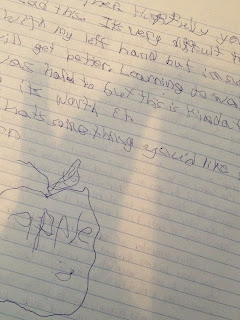 Then Hopefully yo
read this. Its very difficult t
with my left hand but im su
will get better. Learning to wa
was hard to but this is Kinda
is it worth it.
hats something you'd like
on.
apple